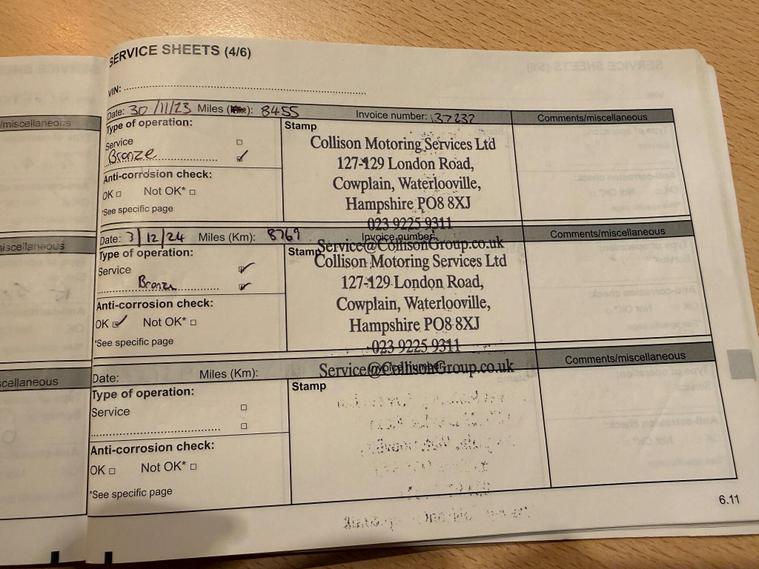 SERVICE SHEETS (4/6)
VIN:
/miscellaneous
Date: 30/11/23 Miles (Km): 8455 Invoice number: 37232 Comments/miscellaneous
Type of operation:
Service
Bronze
Anti-corrosion check:
OK Not OK*
*See specific page
Stamp
Collison Motoring Services Ltd
127-129 London Road,
Cowplain, Waterlooville,
Hampshire PO8 8XJ
023 9225 9311
Service@CollisonGroup.co.uk
iscellaneous
Date: 3/12/24 Miles (Km): 8769 Invoice number: Comments/miscellaneous
Type of operation:
Service
Bronze
Anti-corrosion check:
OK Not OK*
*See specific page
Stamp
Collison Motoring Services Ltd
127-129 London Road,
Cowplain, Waterlooville,
Hampshire PO8 8XJ
023 9225 9311
Service@CollisonGroup.co.uk
cellaneous
Date: Miles (Km): Comments/miscellaneous
Type of operation:
Service
Anti-corrosion check:
OK Not OK*
*See specific page
Stamp
6.11